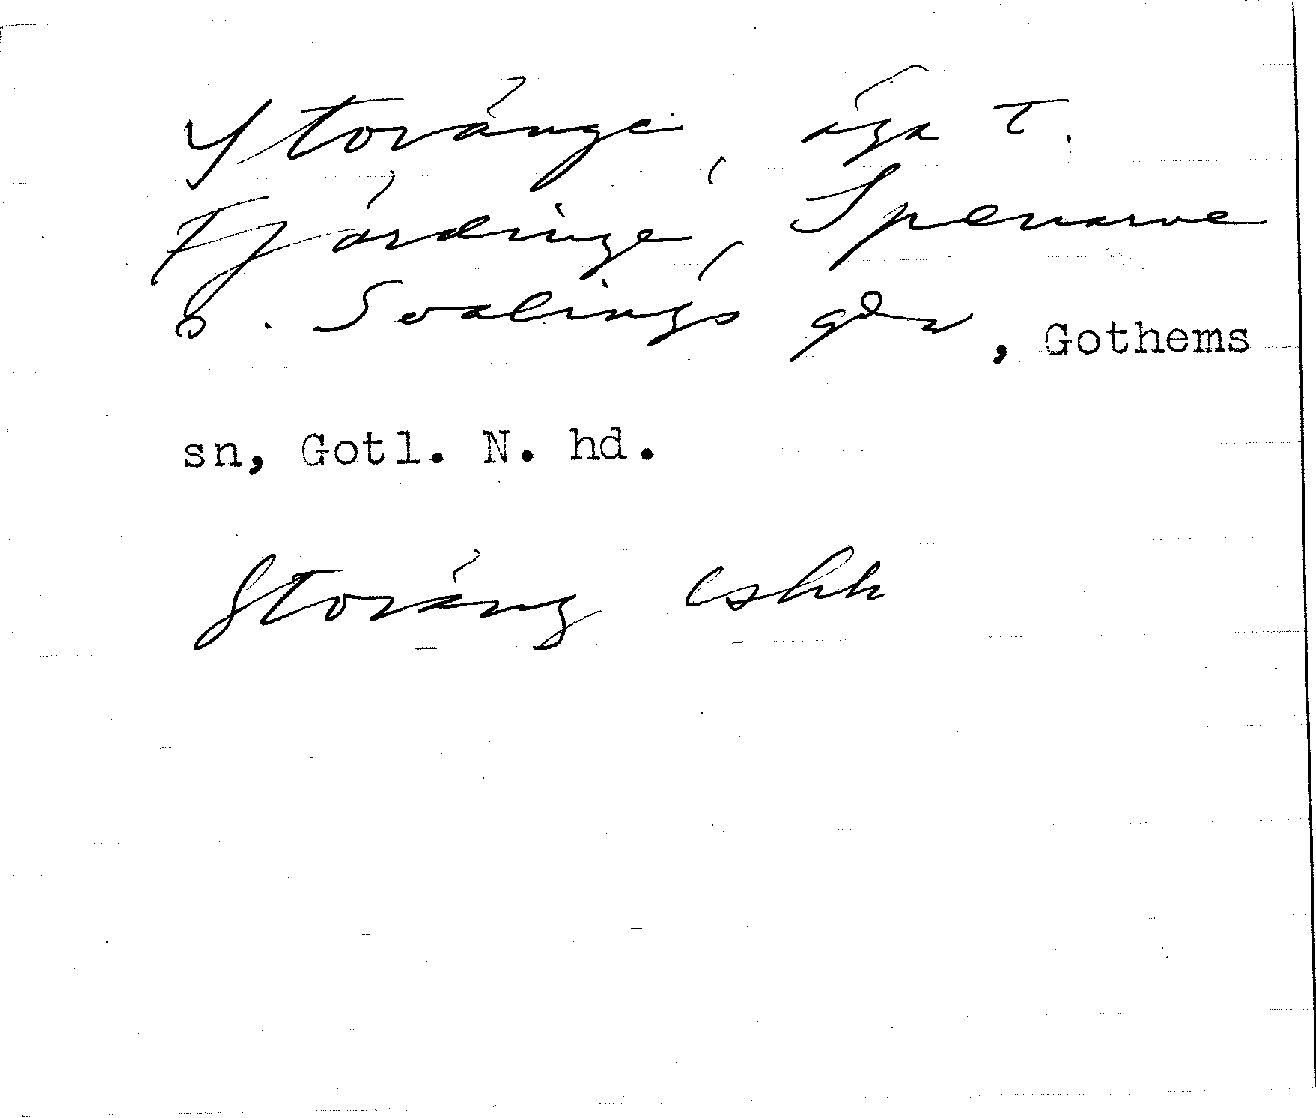 Storänge, äga t.
Fjärdinge, Spenarve
o. Svalings gdr, Gothems
sn, Gotl. N. hd.
Storäng eskk